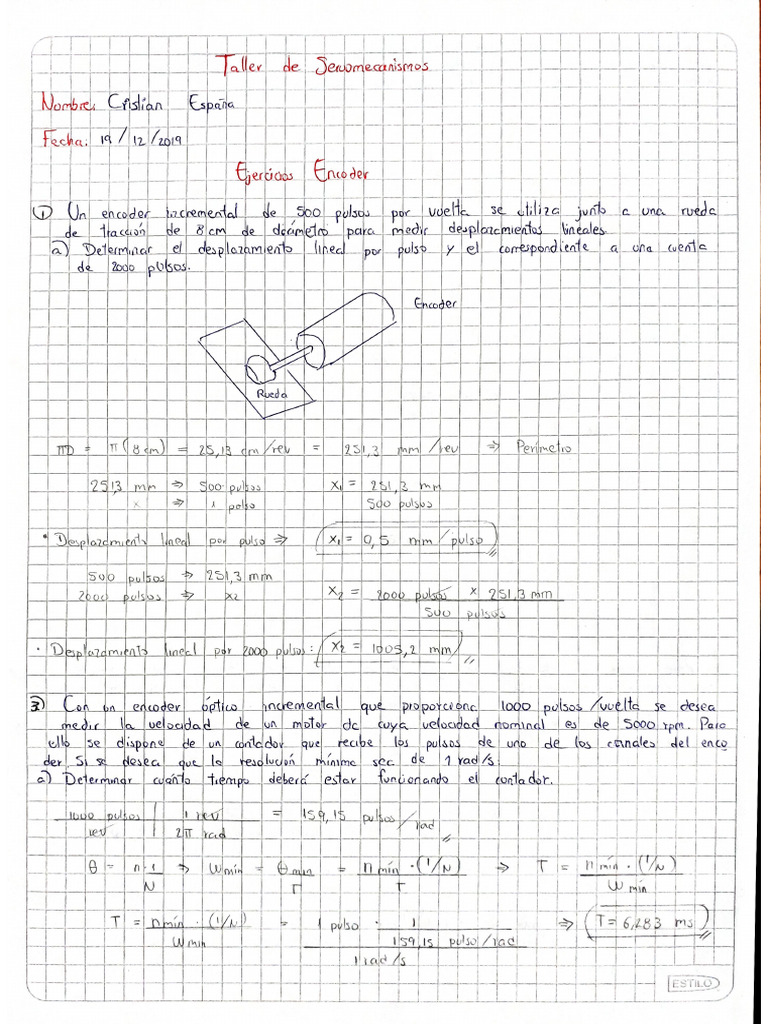 Taller de Servomecanismos
Nombre: Cristian España
Fecha: 19/12/2019
Ejercicios Encoder
① Un encoder incremental de 500 pulsos por vuelta se utiliza junto a una rueda
de tracción de 8 cm de diámetro para medir desplazamientos lineales
a) Determinar el desplazamiento lineal por pulso y el correspondiente a una cuenta
de 2000 pulsos.
Encoder
Rueda
πD = π(8 cm) = 25,13 cm/rev = 251,3 mm/rev ⇒ Perímetro
251,3 mm ⇒ 500 pulsos x₁ = 251,3 mm
x ⇒ 1 pulso 500 pulsos
• Desplazamiento lineal por pulso ⇒ x₁ = 0,5 mm/pulso
500 pulsos ⇒ 251,3 mm
2000 pulsos ⇒ x₂ x₂ = 2000 pulsos x 251,3 mm
500 pulsos
• Desplazamiento lineal por 2000 pulsos: x₂ = 1005,2 mm
3) Con un encoder óptico incremental que proporciona 1000 pulsos/vuelta se desea
medir la velocidad de un motor dc cuya velocidad nominal es de 5000 rpm. Para
ello se dispone de un contador que recibe los pulsos de uno de los canales del enco
der Si se desea que la resolución mínima sea de 1 rad/s:
a) Determinar cuánto tiempo deberá estar funcionando el contador.
1000 pulsos | 1 rev = 159,15 pulsos/rad
rev | 2π rad
θ = n·1 ⇒ ωmín = θmín = nmín·(1/N) ⇒ T = nmín·(1/N)
N T T ωmín
T = nmín·(1/N) = 1 pulso · 1 ⇒ T = 6,283 ms
ωmín 159,15 pulso/rad
1 rad/s
ESTILO